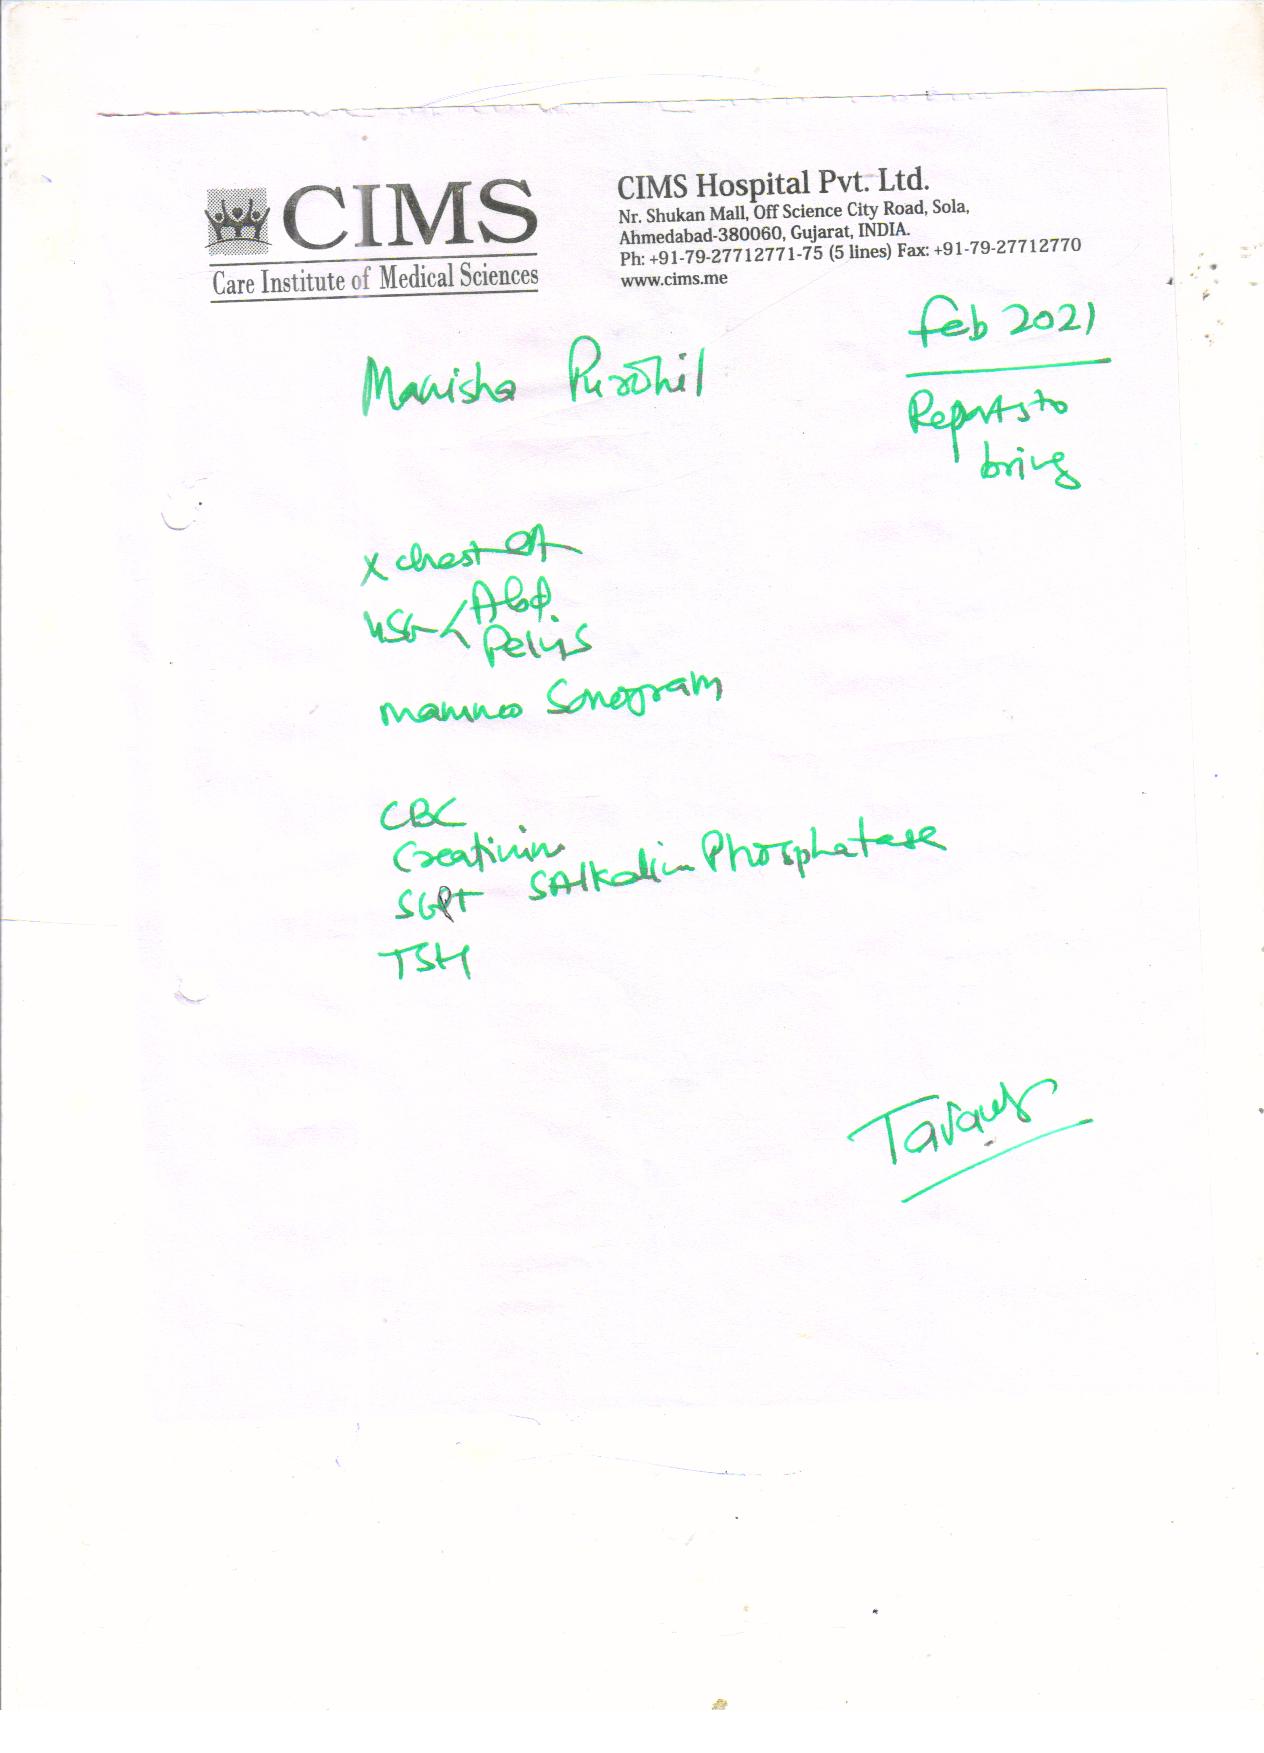 CIMS
Care Institute of Medical Sciences
CIMS Hospital Pvt. Ltd.
Nr. Shukan Mall, Off Science City Road, Sola,
Ahmedabad-380060, Gujarat, INDIA.
Ph: +91-79-27712771-75 (5 lines) Fax: +91-79-27712770
www.cims.me
Feb 2021
Manisha Purohit
Reports to
bring
X chest
USG Abd.
Pelvis
mammo Sonogram
CBC
Creatinin
SGPT SAlkalin Phosphatase
TSH